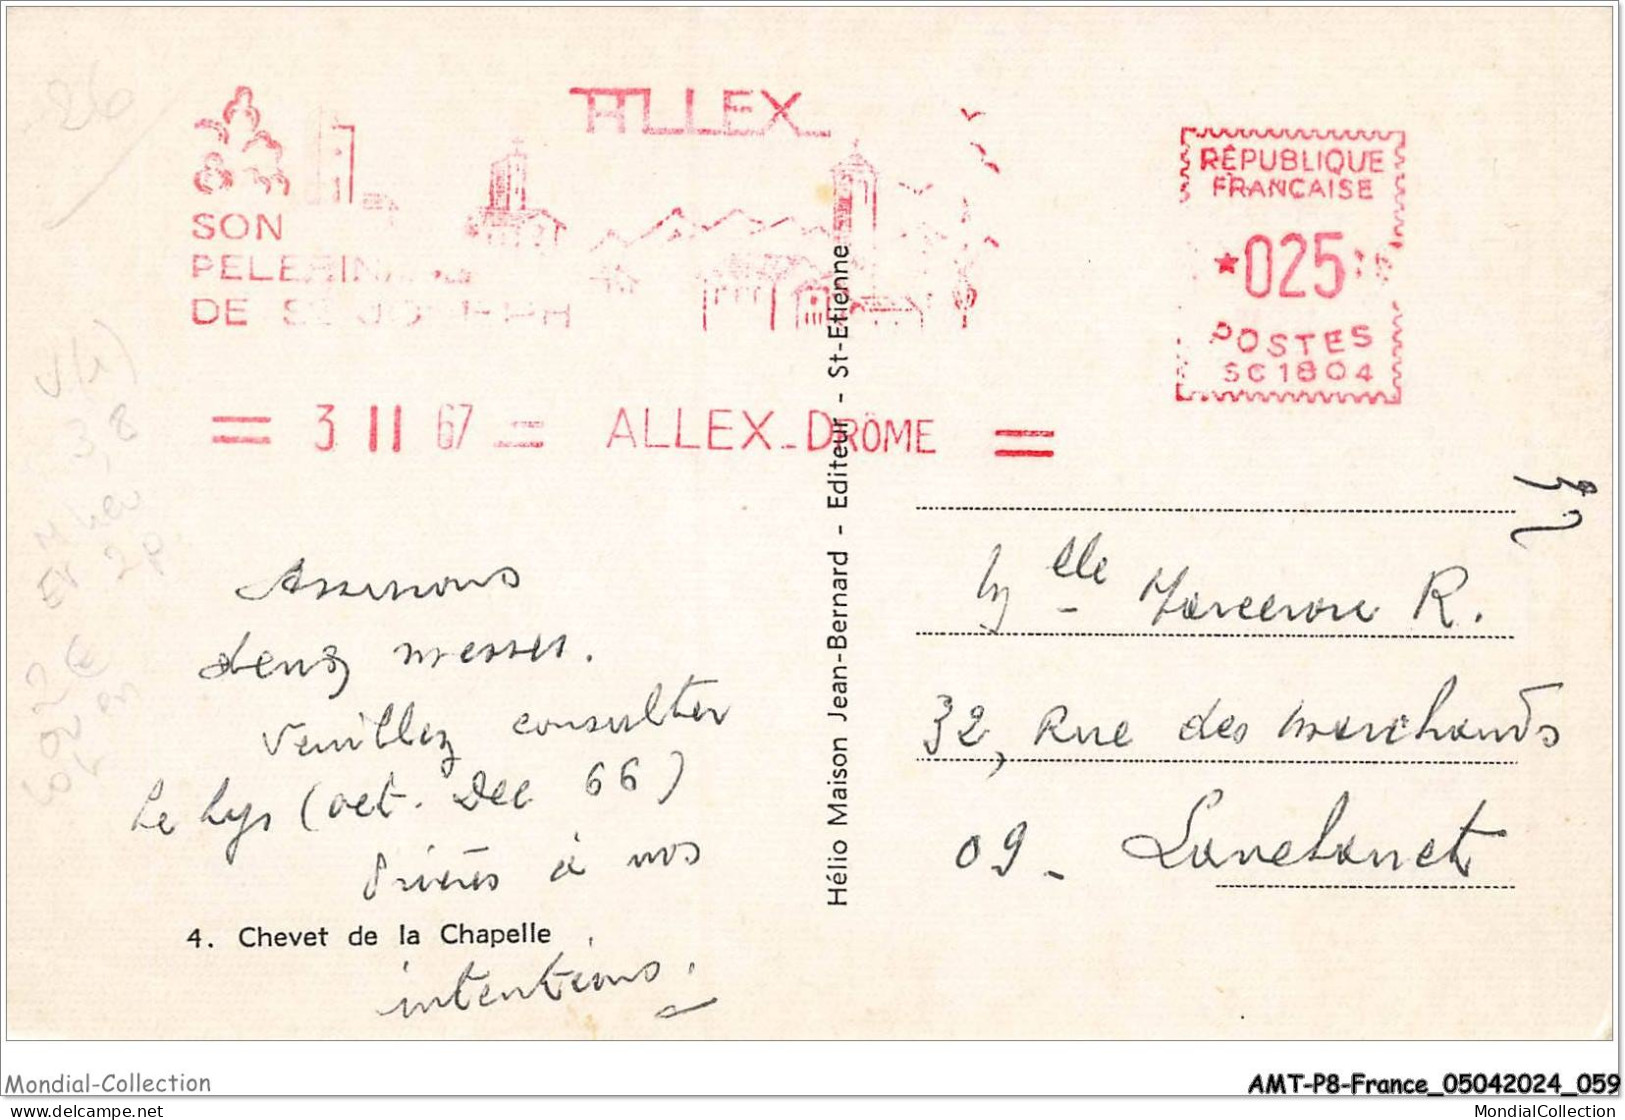 ALLEX
SON
PELERINAGE
DE St JOSEPH
RÉPUBLIQUE
FRANCAISE
*025
POSTES
SC1804
= 3 II 67 = ALLEX_DRÔME =
Hélio Maison Jean-Bernard - Editeur - St-Etienne
26
3,8
2P
2€
32
Assurons
deux messes.
Veuillez consulter
le Lys (oct. Dec 66)
Prières à nos
4. Chevet de la Chapelle
intentions.
Mlle R.
32, Rue des Marchands
09 - Lavelanet
Mondial-Collection
AMT-P8-France_05042024_059
www.delcampe.net
MondialCollection